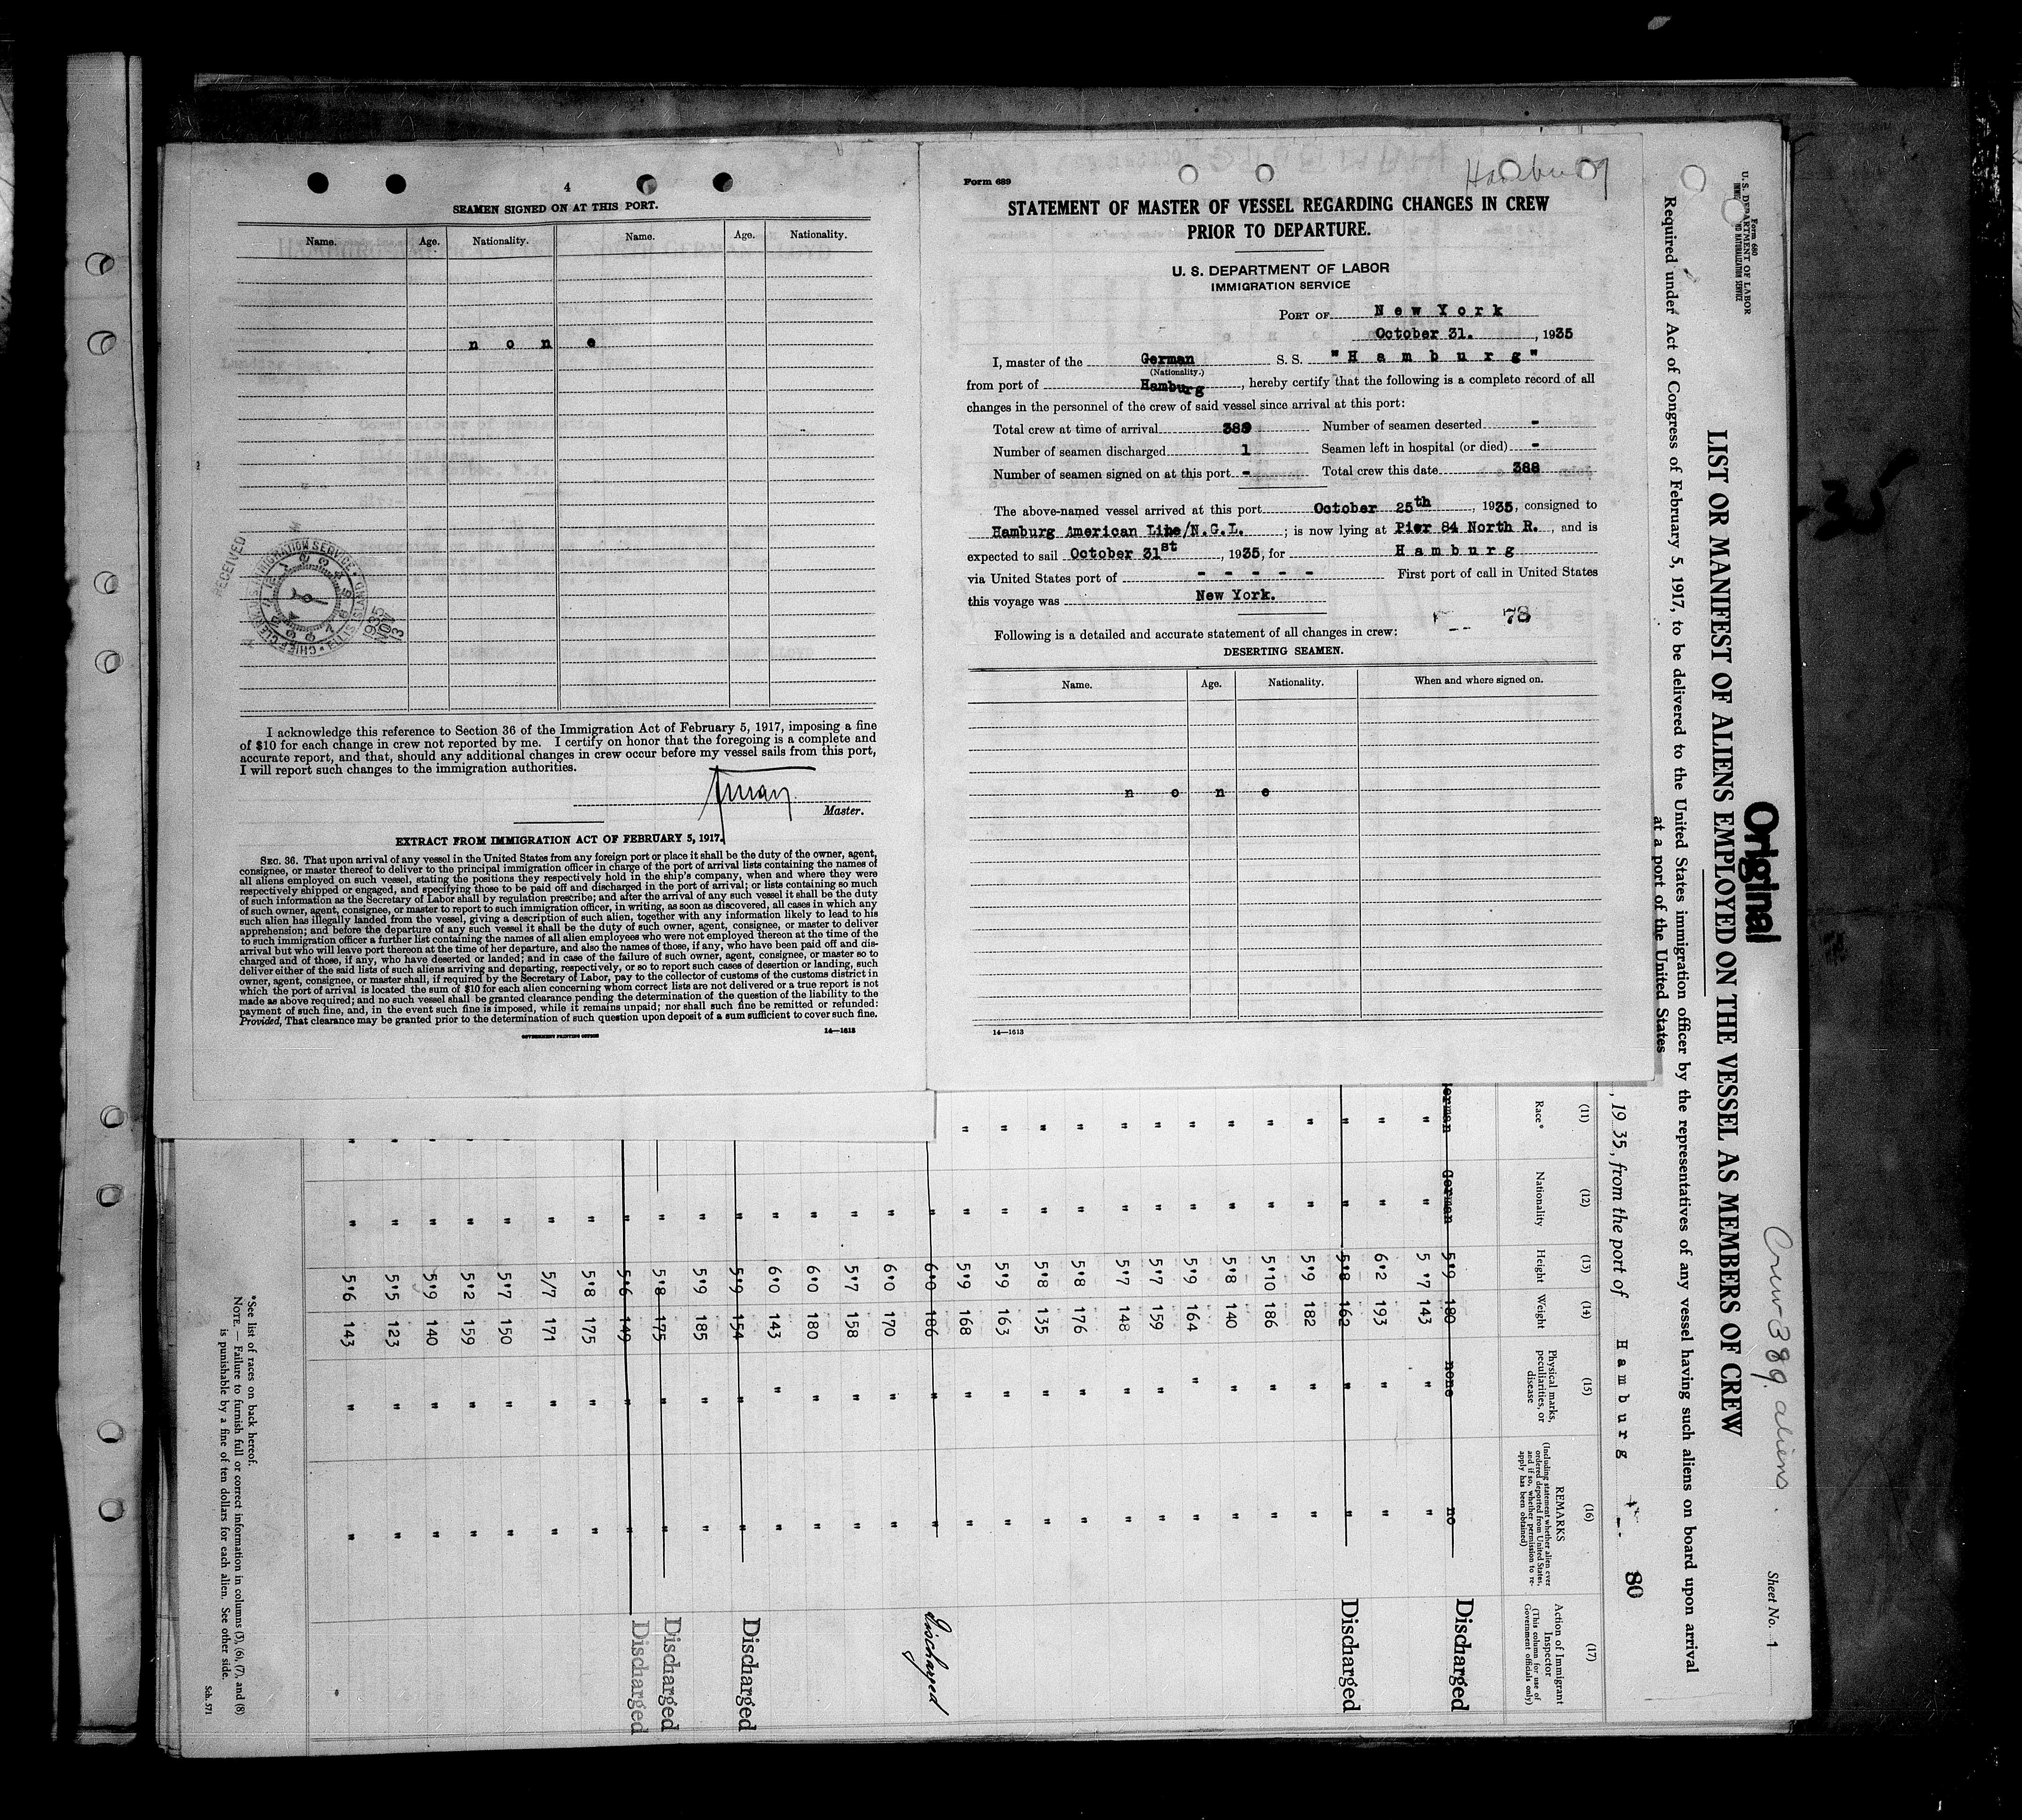 4
SEAMEN SIGNED ON AT THIS PORT.
Name. Age. Nationality. Name. Age. Nationality.
n o n e
RECEIVED
IMMIGRATION SERVICE
1935 NOV 3
I acknowledge this reference to Section 36 of the Immigration Act of February 5, 1917, imposing a fine
of $10 for each change in crew not reported by me. I certify on honor that the foregoing is a complete and
accurate report, and that, should any additional changes in crew occur before my vessel sails from this port,
I will report such changes to the immigration authorities.
Master.
EXTRACT FROM IMMIGRATION ACT OF FEBRUARY 5, 1917.
SEC. 36. That upon arrival of any vessel in the United States from any foreign port or place it shall be the duty of the owner, agent,
consignee, or master thereof to deliver to the principal immigration officer in charge of the port of arrival lists containing the names of
all aliens employed on such vessel, stating the positions they respectively hold in the ship's company, when and where they were
respectively shipped or engaged, and specifying those to be paid off and discharged in the port of arrival; or lists containing so much
of such information as the Secretary of Labor shall by regulation prescribe; and after the arrival of any such vessel it shall be the duty
of such owner, agent, consignee, or master to report to such immigration officer, in writing, as soon as discovered, all cases in which any
such alien has illegally landed from the vessel, giving a description of such alien, together with any information likely to lead to his
apprehension; and before the departure of any such vessel it shall be the duty of such owner, agent, consignee, or master to deliver
to such immigration officer a further list containing the names of all alien employees who were not employed thereon at the time of the
arrival but who will leave port thereon at the time of her departure, and also the names of those, if any, who have been paid off and dis-
charged and of those, if any, who have deserted or landed; and in case of the failure of such owner, agent, consignee, or master so to
deliver either of the said lists of such aliens arriving and departing, respectively, or so to report such cases of desertion or landing, such
owner, agent, consignee, or master shall, if required by the Secretary of Labor, pay to the collector of customs of the customs district in
which the port of arrival is located the sum of $10 for each alien concerning whom correct lists are not delivered or a true report is not
made as above required; and no such vessel shall be granted clearance pending the determination of the question of the liability to the
payment of such fine, and, in the event such fine is imposed, while it remains unpaid; nor shall such fine be remitted or refunded:
Provided, That clearance may be granted prior to the determination of such question upon deposit of a sum sufficient to cover such fine.
GOVERNMENT PRINTING OFFICE 14—1613
Form 689
Hamburg
STATEMENT OF MASTER OF VESSEL REGARDING CHANGES IN CREW
PRIOR TO DEPARTURE.
U. S. DEPARTMENT OF LABOR
IMMIGRATION SERVICE
PORT OF New York
October 31. , 1935
I, master of the German S. S. "H a m b u r g"
(Nationality.)
from port of Hamburg , hereby certify that the following is a complete record of all
changes in the personnel of the crew of said vessel since arrival at this port:
Total crew at time of arrival 389 Number of seamen deserted -
Number of seamen discharged 1 Seamen left in hospital (or died) -
Number of seamen signed on at this port - Total crew this date 388
The above-named vessel arrived at this port October 25th , 1935, consigned to
Hamburg American Line/N.G.L. ; is now lying at Pier 84 North R. , and is
expected to sail October 31st , 1935, for H a m b u r g
via United States port of - - - - - First port of call in United States
this voyage was New York.
78
Following is a detailed and accurate statement of all changes in crew:
DESERTING SEAMEN.
Name. Age. Nationality. When and where signed on.
n o n e
14—1613
Form 680
U. S. DEPARTMENT OF LABOR
Original
Crew 389. aliens.
Sheet No. 1
LIST OR MANIFEST OF ALIENS EMPLOYED ON THE VESSEL AS MEMBERS OF CREW
Required under Act of Congress of February 5, 1917, to be delivered to the United States immigration officer by the representatives of any vessel having such aliens on board upon arrival
at a port of the United States
, 19 35, from the port of H a m b u r g 80
(11) (12) (13) (14) (15) (16) (17)
Race* Nationality Height Weight Physical marks, peculiarities, or disease REMARKS (Including statement whether alien ever ordered deported from United States, and if so, whether permission to re-apply has been obtained) Action of Immigrant Inspector (This column for use of Government officials only)
German German 5'9 180 none no Discharged
" " 5'7 143 " "
" " 6'2 193 " "
" " 5'8 162 " " Discharged
" " 5'9 182 " "
" " 5'10 186 " "
" " 5'8 140 " "
" " 5'9 164 " "
" " 5'7 159 " "
" " 5'7 148 " "
" " 5'8 176 " "
" " 5'8 135 " "
" " 5'9 163 " "
" " 5'9 168 " "
" 6'0 186 " " Discharged
" 6'0 170 " "
" 5'7 158 " "
" 6'0 180 " "
" 6'0 143 " "
" " 5'9 154 " " Discharged
" 5'9 185 " "
" 5'8 175 " " Discharged
" " 5'6 149 " " Discharged
" 5'8 175 " "
" 5/7 171 " "
" 5'7 150 " "
" 5'2 159 " "
" 5'9 140 " "
" 5'5 123 " "
" " 5'6 143 " "
*See list of races on back hereof.
NOTE.—Failure to furnish full or correct information in columns (3), (6), (7), and (8)
is punishable by a fine of ten dollars for each alien. See other side.
Sch. 571
-35